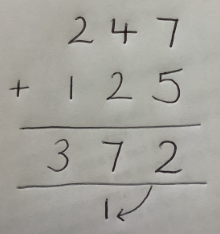 247
+ 125
372
1